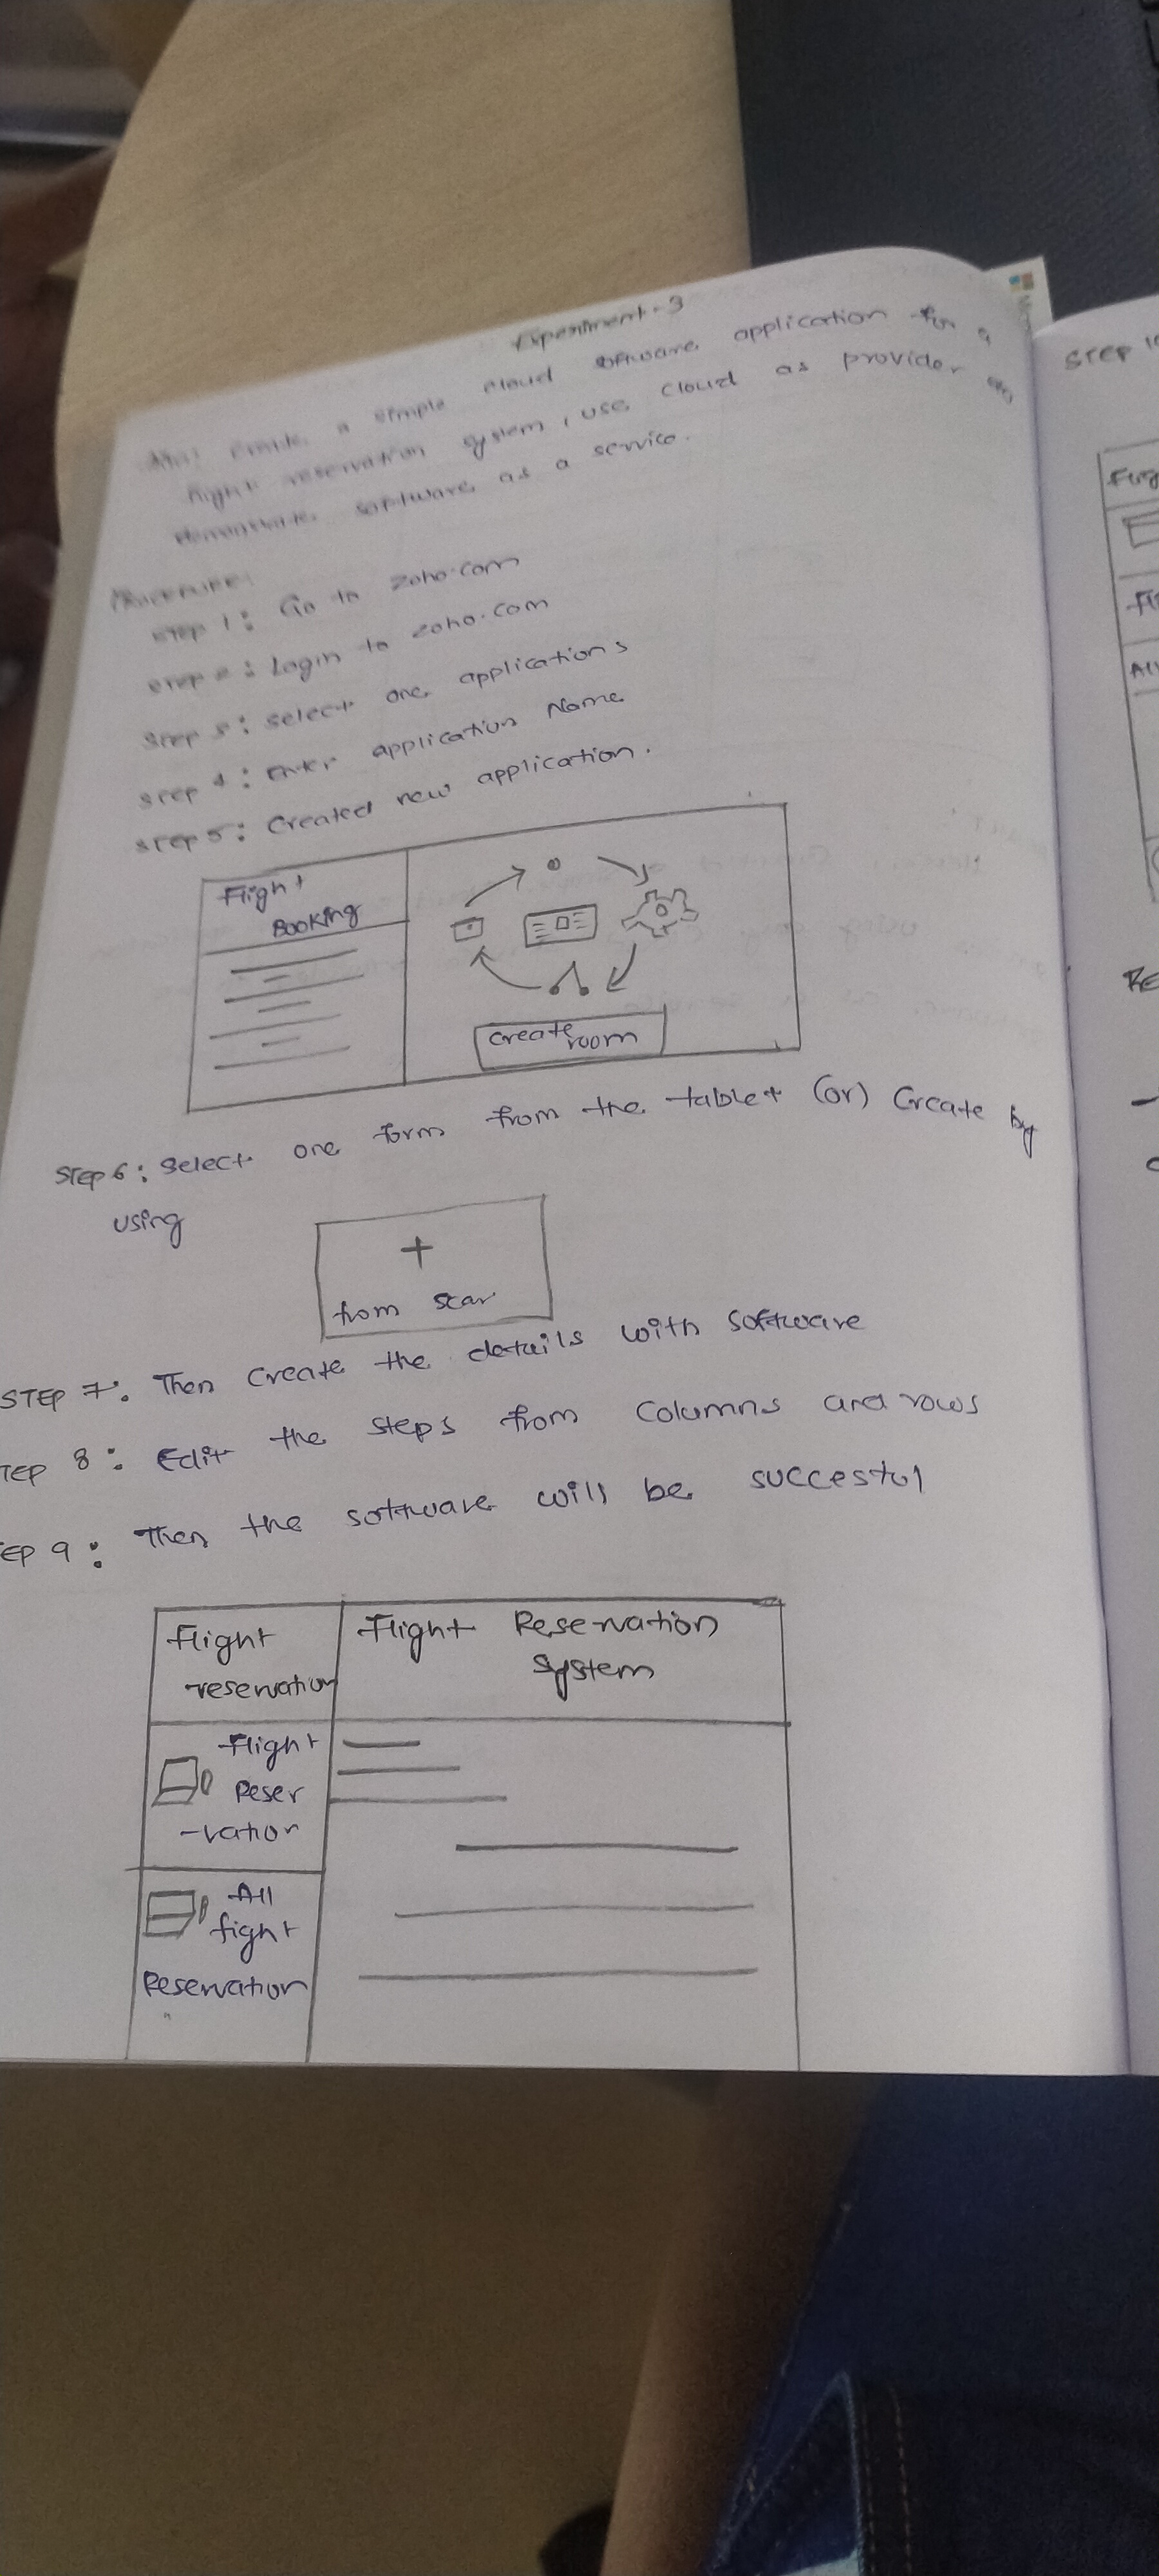 Experiment-3
Aim: Create a simple cloud software application for a
flight reservation system, use cloud as provider
demonstrate software as a service.
Procedure:
STEP 1: Go to zoho.com
STEP 2: Login to zoho.com
STEP 3: select one applications
STEP 4: enter application Name
STEP 5: Created new application.
Flight
Booking
Create room
STEP 6: Select one form from the tablet (or) Create by
using
+
from scar
STEP 7: Then create the details with software
TEP 8: Edit the steps from columns and rows
EP 9: Then the software will be succesful
flight
reservation
Flight Reservation
System
flight
Reser
-vation
All
fight
Reservation
STEP